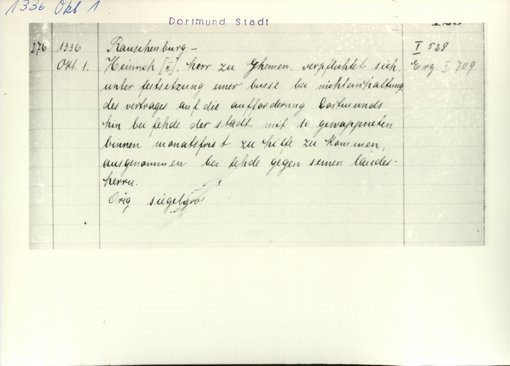 1336 Okt 1
Dortmund Stadt
276 1336 Rauschenburg – I 528
Okt. 1. Heinrich [V], herr zu Ahemen, verpflichtet sich Erg. I 709
unter festsetzung einer busse bei nichteinhaltung
des vertrages auf die aufforderung Dortmunds
hin bei fehde der stadt mit 10 gewappneten
binnen monatsfrist zu hilfe zu kommen,
ausgenommen bei fehde gegen seinen landes-
herrn.
Orig